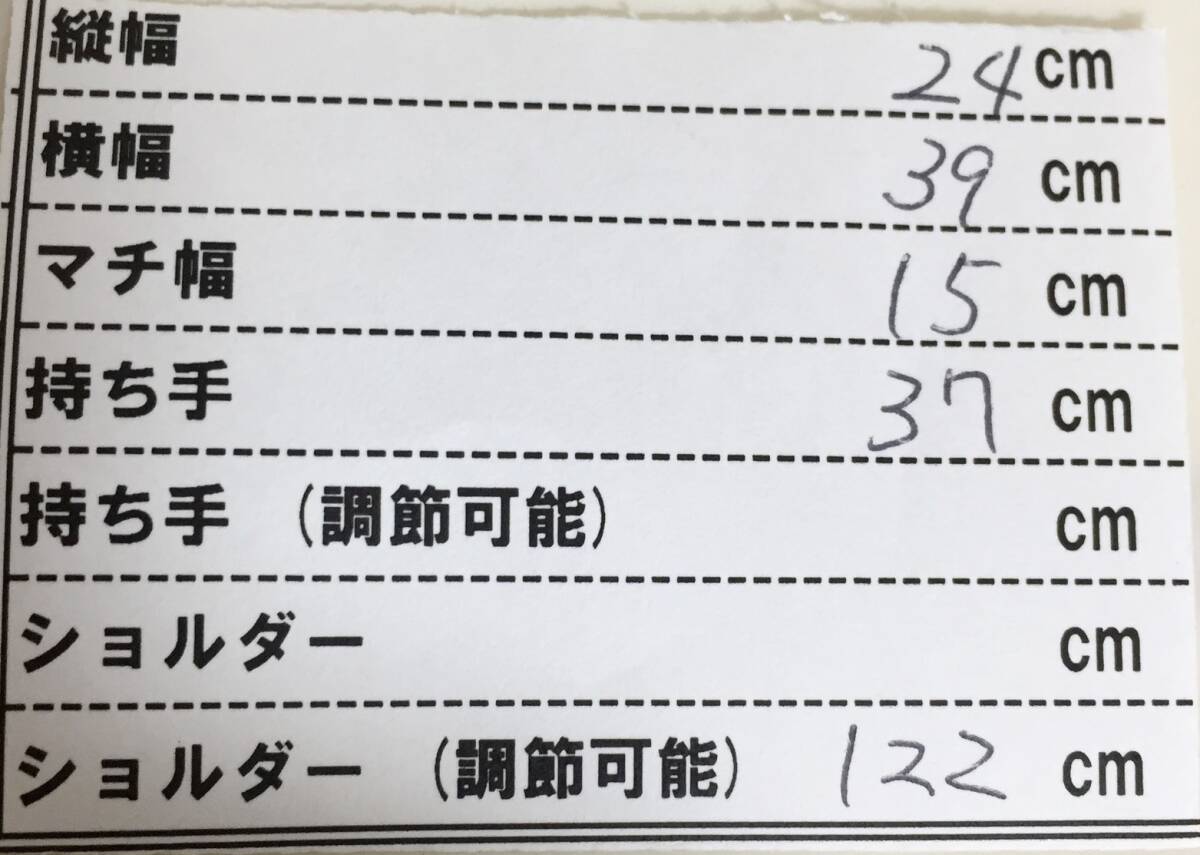 縦幅 24cm
横幅 39cm
マチ幅 15cm
持ち手 37cm
持ち手 (調節可能) cm
ショルダー cm
ショルダー (調節可能) 122cm